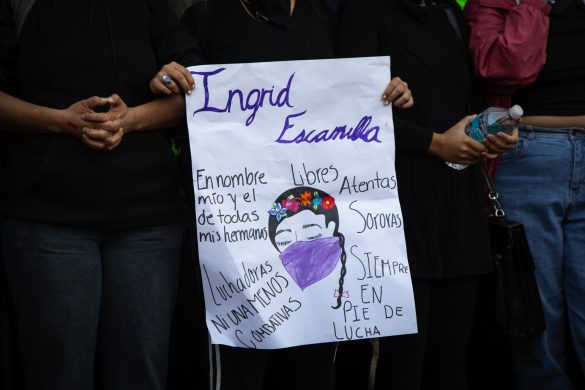 Ingrid
Escamilla
En nombre
mío y el
de todas
mis hermanas
Libres
Atentas
Sororas
Luchadoras
NI UNA MENOS
Combativas
SIEMPRE
EN
PIE DE
LUCHA